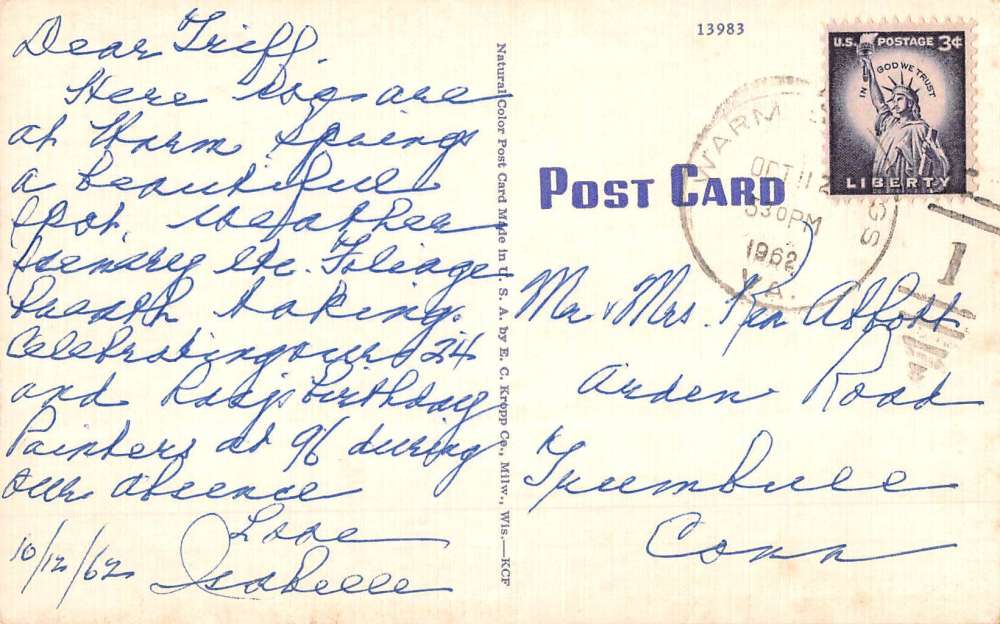 Dear Griff,
Here we are
at Warm Springs
a beautiful
spot, weather
scenery etc. Foliage
breath taking.
Celebrating our 24
and Ray's birthday
Painters at 96 during
our absence
Love
10/12/62 Isabelle
Natural Color Post Card Made in U. S. A. by E. C. Kropp Co., Milw., Wis.—KCF
13983
POST CARD
WARM SPRINGS
OCT 11
530 PM
1962
VA.
U.S. POSTAGE 3¢
IN GOD WE TRUST
LIBERTY
1
Mr & Mrs. Ken Abbott
Arden Road
Trumbull
Conn